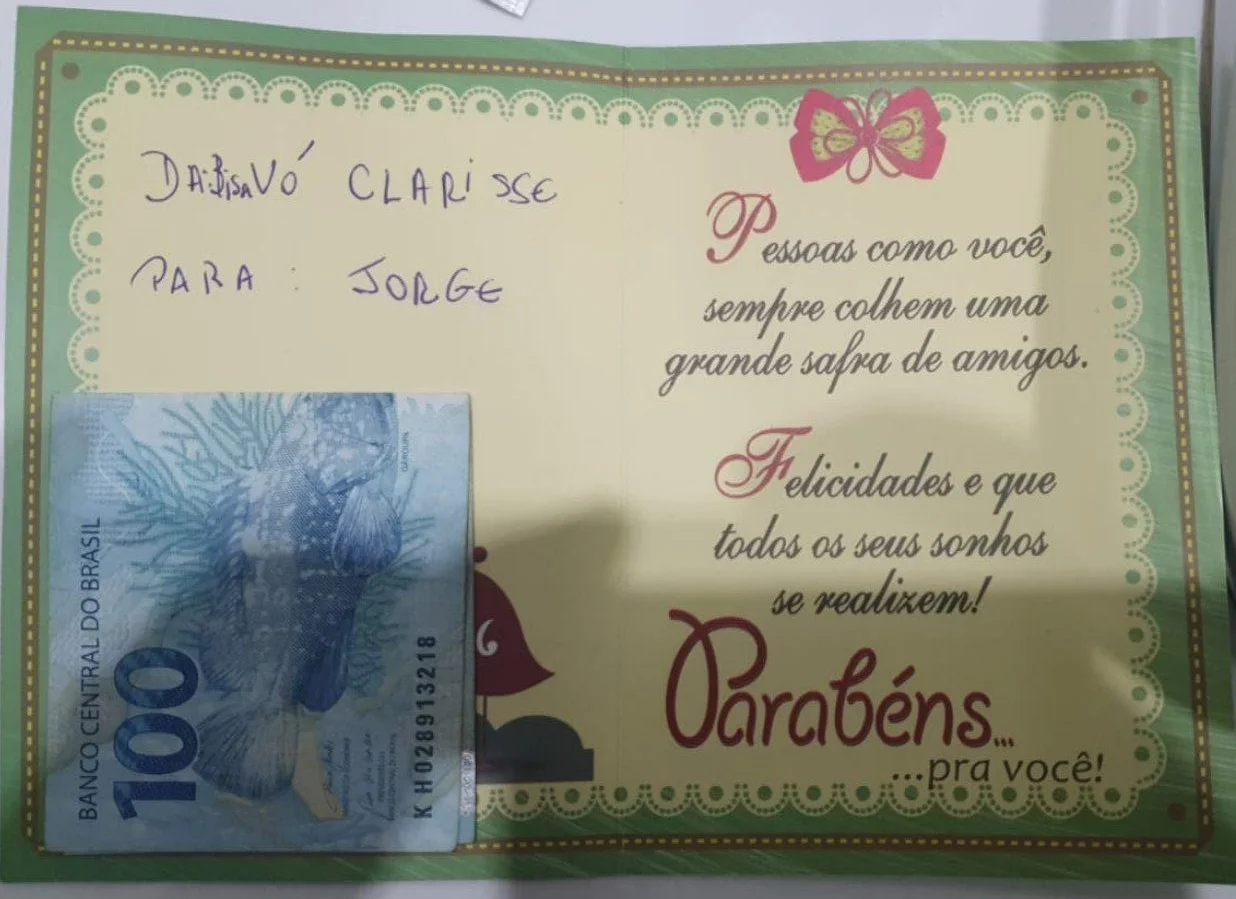 DA: BisAVÓ CLARISSE
PARA : JORGE
Pessoas como você,
sempre colhem uma
grande safra de amigos.
Felicidades e que
todos os seus sonhos
se realizem!
Parabéns...
...pra você!
BANCO CENTRAL DO BRASIL
100
GAROUPA
KH028913218